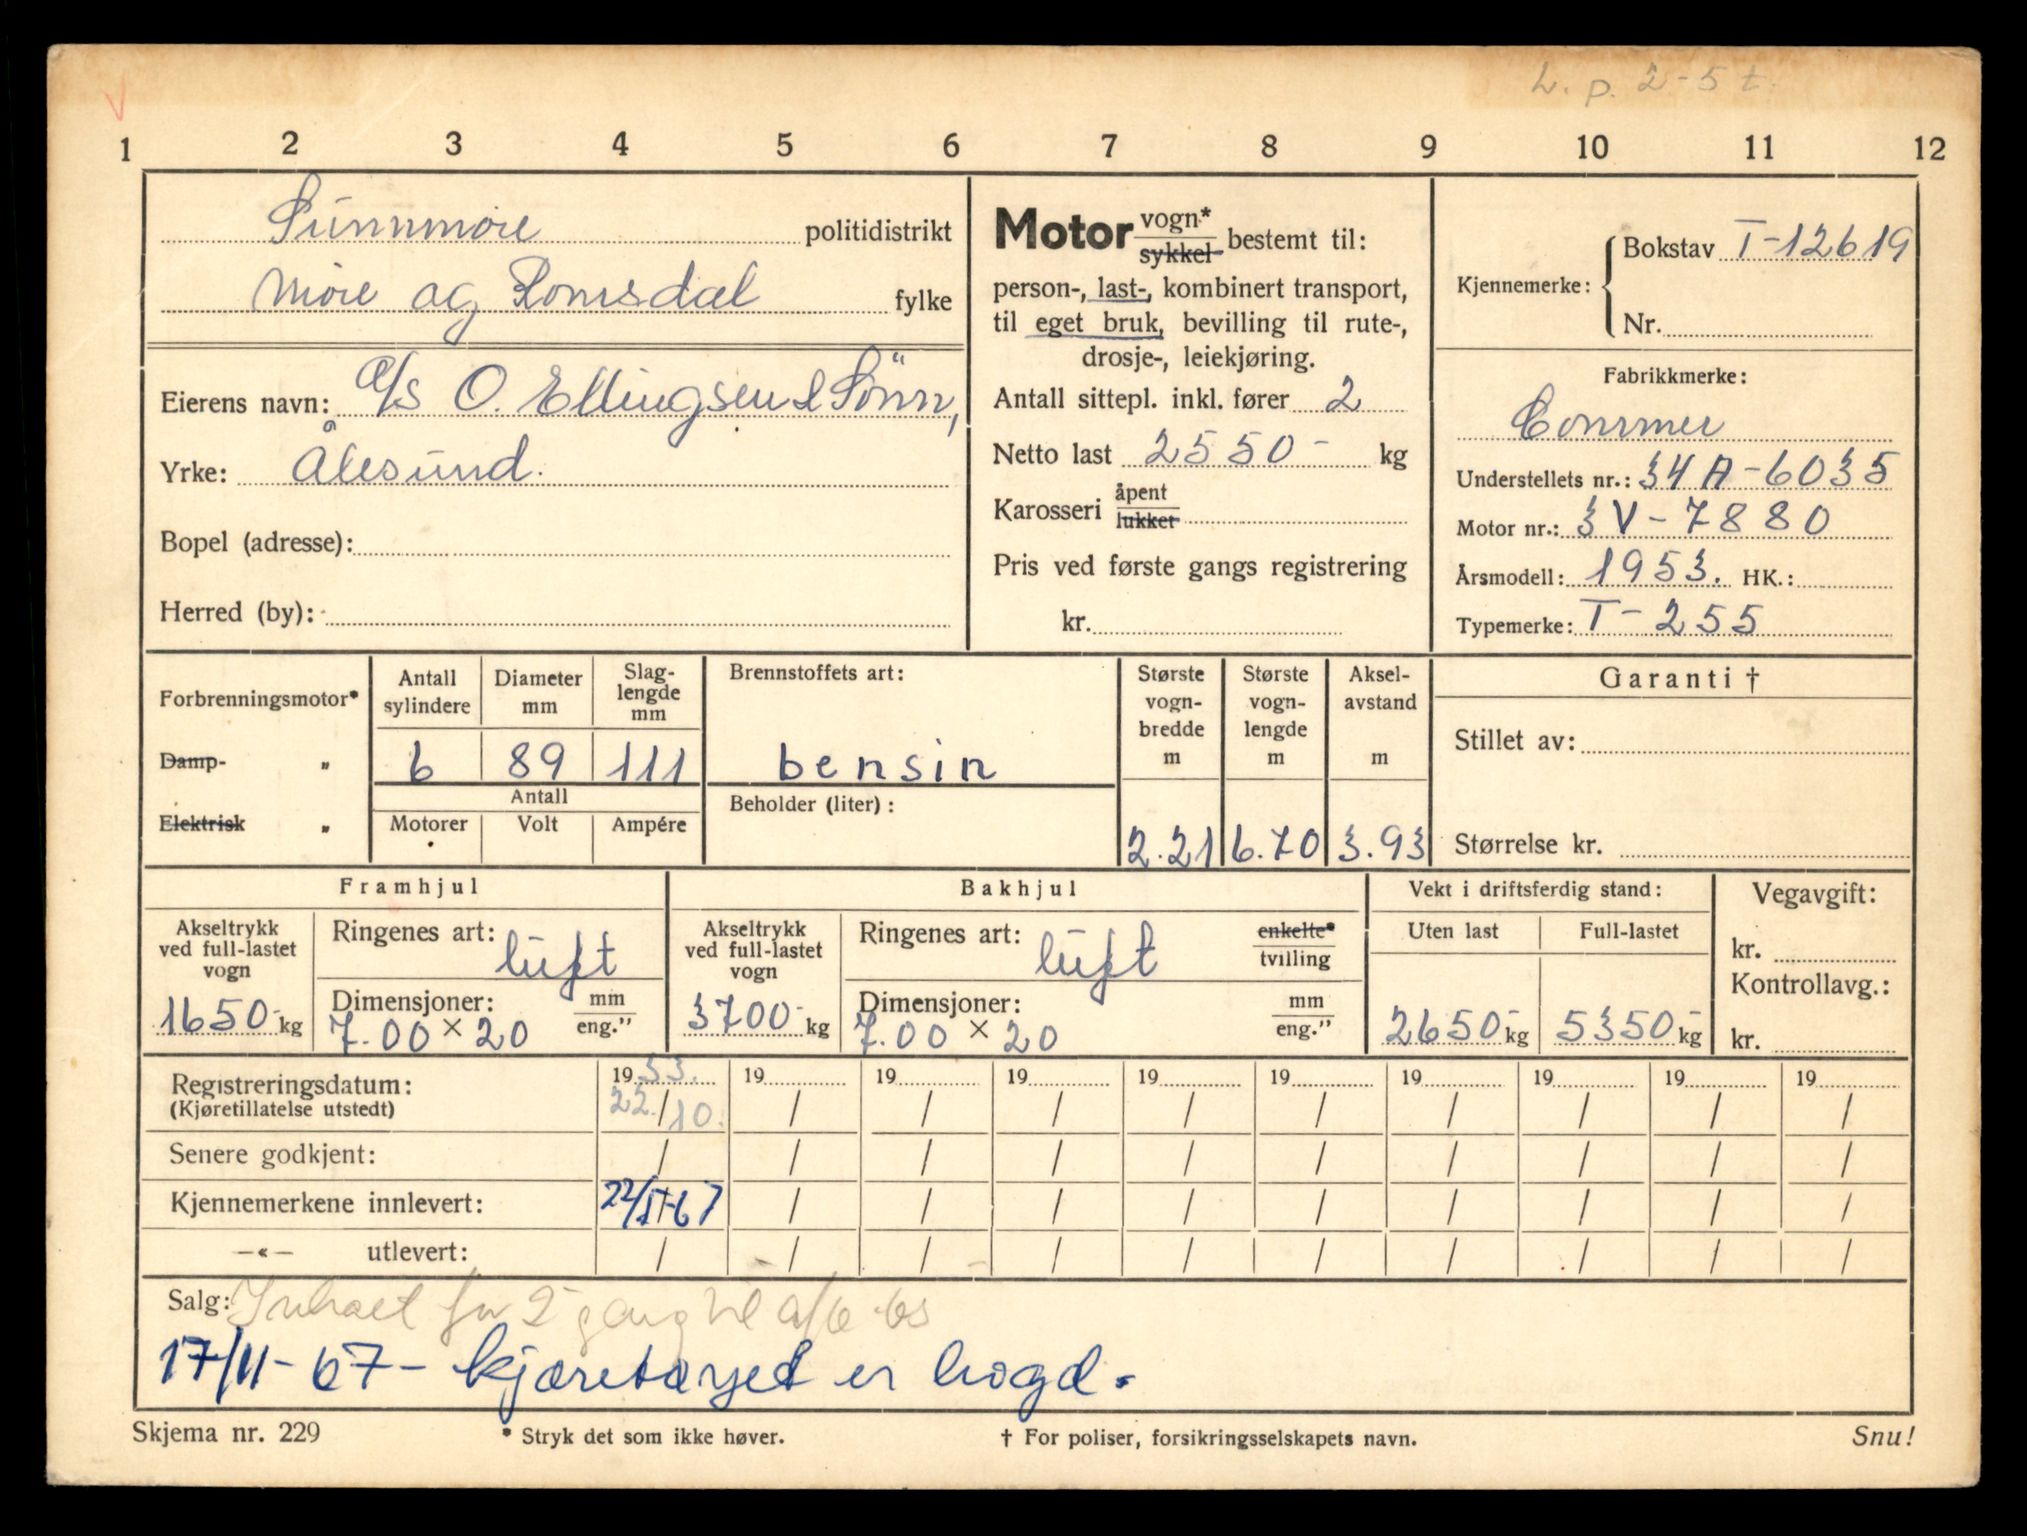 L. p. 2-5 t.
1 2 3 4 5 6 7 8 9 10 11 12
Sunnmøre politidistrikt
Møre og Romsdal fylke
Eierens navn: a/s O. Ellingsen & Sönn,
Yrke: Ålesund.
Bopel (adresse):
Herred (by):
Motor vogn* sykkel bestemt til:
person-, last-, kombinert transport,
til eget bruk, bevilling til rute-,
drosje-, leiekjøring.
Antall sittepl. inkl. fører 2
Netto last 2550- kg
Karosseri åpent lukket
Pris ved første gangs registrering
kr.
Kjennemerke: Bokstav T-12619
Nr.
Fabrikkmerke:
Commer
Understellets nr.: 34A-6035
Motor nr.: 3V-7880
Årsmodell: 1953. HK.:
Typemerke: T-255
Forbrenningsmotor*
Damp- „
Elektrisk „
Antall sylindere
6
Diameter mm
89
Slag-lengde mm
111
Antall
Motorer Volt Ampére
Brennstoffets art:
bensin
Beholder (liter):
Største vogn-bredde m
2.21
Største vogn-lengde m
6.70
Aksel-avstand m
3.93
Garanti †
Stillet av:
Størrelse kr.
Framhjul
Akseltrykk ved full-lastet vogn
1650- kg
Ringenes art: luft
Dimensjoner: mm eng."
7.00 × 20
Bakhjul
Akseltrykk ved full-lastet vogn
3700- kg
Ringenes art: luft enkelte* tvilling
Dimensjoner: mm eng."
7.00 × 20
Vekt i driftsferdig stand:
Uten last Full-lastet
2650- kg 5350- kg
Vegavgift:
kr.
Kontrollavg.:
kr.
Registreringsdatum: 1953. 19 19 19 19 19 19 19 19 19
(Kjøretillatelse utstedt) 22./10. / / / / / / / / /
Senere godkjent: / / / / / / / / / /
Kjennemerkene innlevert: 22/ -67 / / / / / / / / /
—«— utlevert: / / / / / / / / / /
Salg: 2 gang til
17/11-67- kjøretøyet er hogd.
Skjema nr. 229 * Stryk det som ikke høver. † For poliser, forsikringsselskapets navn. Snu!